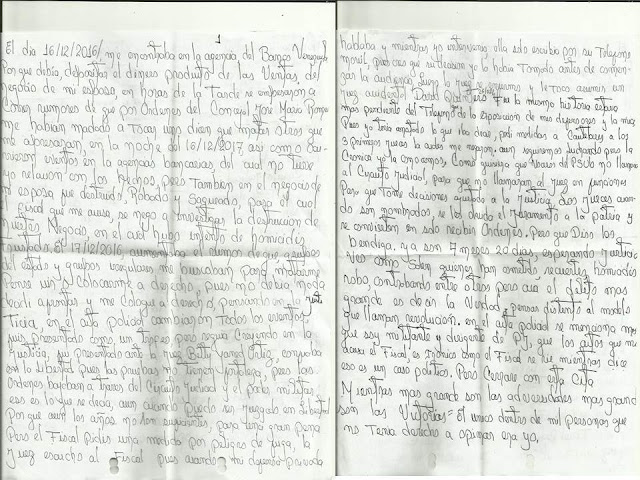 1
El dia 16/12/2016, me encontraba en la agencia del Banco Venezuela
Por que debia depositar el dinero producto de las Ventas, del
negocio de mi esposa en horas de la Tarde se empezaron a
Correr rumores de que por Ordenes del Concejal Jose Maria
me habian mandado a Tocar unos dicen que matar otros que
me aborescan, en la noche del 16/12/2017 asi como o cu-
rrieron eventos en la agencias bancarias del cual no tuve
yo relacion con los Hechos, pues Tambien en el negocio de
mi esposa fue destruido, Robado y Saqueado, para el cual
el Fiscal que me acusa, se nego a investigar la destruccion de
nuestro Negocio, en el cual hubo intento de homicidio
el 17/12/2016, aumentaron el rumor de que
del estado y grupos irregulares me buscaban para
Pense un Colocarme a derecho, pues no debia nada
decidi apuntar y me Coloque a derecho, pensando en la Jus-
Ticia, en el acta policial cambiaron Todos los eventos,
fuis presentado como un Trofeo pero seguia Creyendo en la
Justicia, fui presentado ante la juez
en la Libertad pues las pruebas no Tienen fortaleza, pero las
Ordenes bajaban a traves del Circuito Judicial y el Poder militar
eso es lo que se decia, aun cuando puedo ser Juzgado en Libertad
Por que aun los años no son suficientes, para una gran pena
Pero el Fiscal pidio una medida por peligro de fuga, la
Juez escucho al Fiscal pues cuando mi defensa privada
hablaba y mientras yo intervenia ella solo escribia por su Telefono
movil, pues creo que su decision ya la habia Tomado antes de comen-
zar la audiencia, luego la juez y le toco asumir un
juez accidental David fue la misma historia estuvo
mas pendiente del Telefono de la exposicion de mis defensores y la mia
Pues ya tenia anotado lo que iba decir, pero medidas a Cautelares a los
3 primeros jueces la audes me negaron, aun seguiremos luchando pero la
Cronica ya la conocemos, Como quisiera que Voceros del PSUV no llamaran
al Circuito Judicial, para que no llamaran al Juez en funciones
Para que Tome decisiones ajustado a la Justicia, los jueces cuan-
do son nombrados, se les olvido el Juramento a la patria y
se convierten en solo recibir Ordenes. Pero que Dios los
bendiga, ya son 7 meses 20 dias, esperando Justicia
Ver como salen quienes han cometido secuestro, homicidios
robo, contrabando entre otros pero aca el delito mas
grande es decir la Verdad, pensar distinto al modelo
que llaman revolucion. en el acta policial se menciona mas
que soy militante y dirigente de PJ, que los delitos que me
acusa el Fiscal, es ironico como el Fiscal se rie mientras dice
eso es un caso politico, Pero Cerrare con esta Cita
Mientras mas grande son las adversidades mas grand
son las Victorias = El unico dentro de mil personas que
no Tenia derecho a opinar era yo.